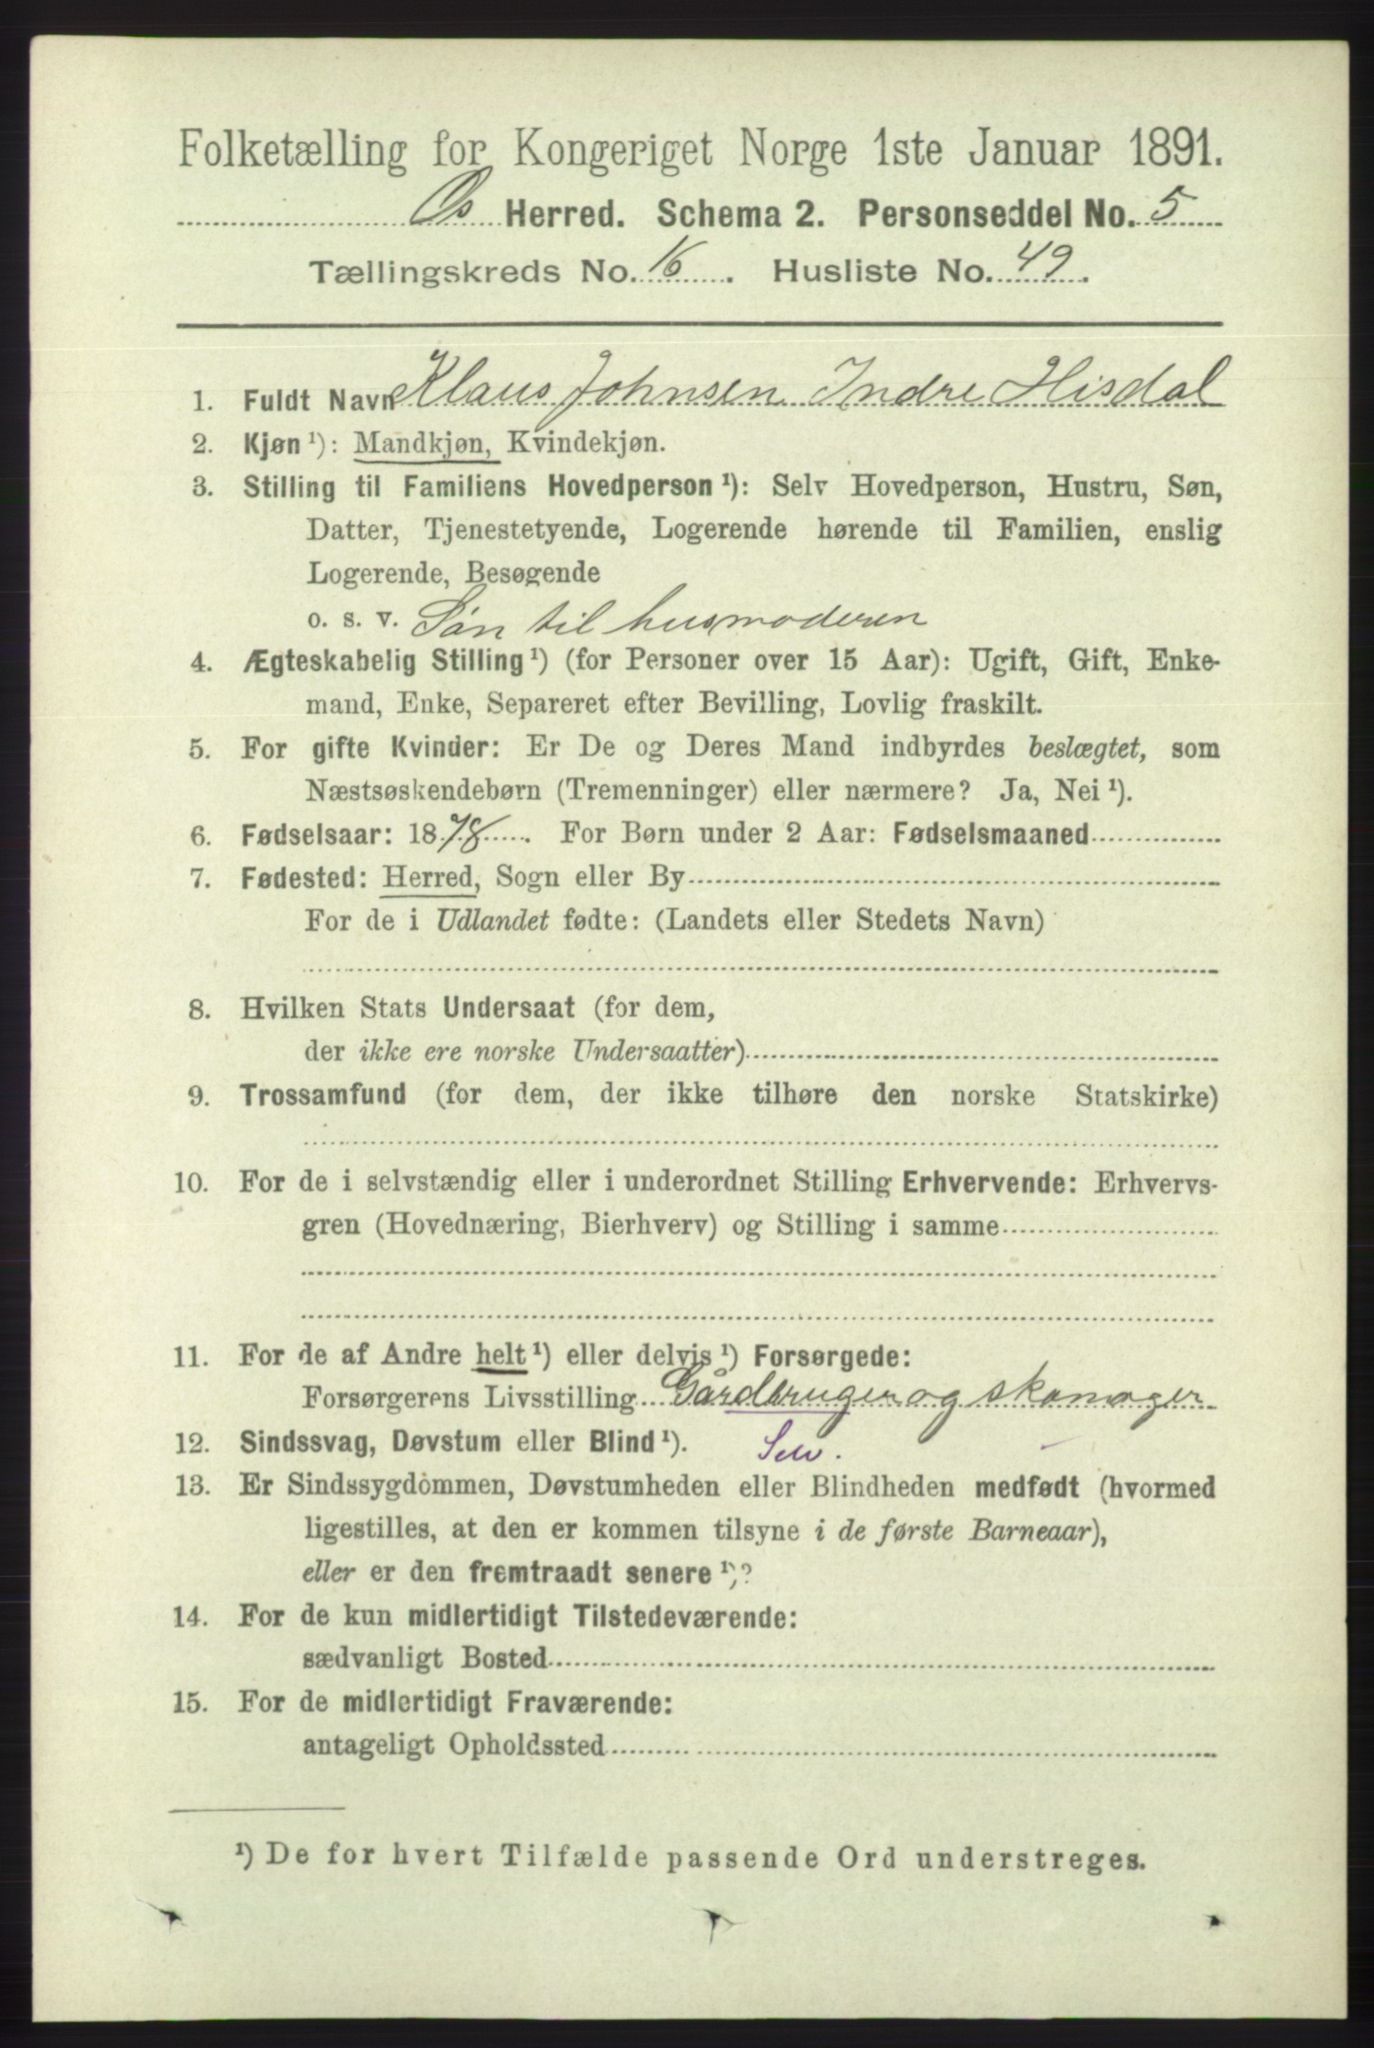 Folketælling for Kongeriget Norge 1ste Januar 1891.
Os Herred. Schema 2. Personseddel No. 5
Tællingskreds No. 16. Husliste No. 49.
1. Fuldt Navn Klaus Johnsen Indre Hisdal
2. Kjøn ¹): Mandkjøn, Kvindekjøn.
3. Stilling til Familiens Hovedperson ¹): Selv Hovedperson, Hustru, Søn,
Datter, Tjenestetyende, Logerende hørende til Familien, enslig
Logerende, Besøgende
o. s. v. Søn til husmoderen
4. Ægteskabelig Stilling ¹) (for Personer over 15 Aar): Ugift, Gift, Enke-
mand, Enke, Separeret efter Bevilling, Lovlig fraskilt.
5. For gifte Kvinder: Er De og Deres Mand indbyrdes beslægtet, som
Næstsøskendebørn (Tremenninger) eller nærmere? Ja, Nei ¹).
6. Fødselsaar: 1878. For Børn under 2 Aar: Fødselsmaaned
7. Fødested: Herred, Sogn eller By
For de i Udlandet fødte: (Landets eller Stedets Navn)
8. Hvilken Stats Undersaat (for dem,
der ikke ere norske Undersaatter)
9. Trossamfund (for dem, der ikke tilhøre den norske Statskirke)
10. For de i selvstændig eller i underordnet Stilling Erhvervende: Erhvervs-
gren (Hovednæring, Bierhverv) og Stilling i samme
11. For de af Andre helt ¹) eller delvis ¹) Forsørgede:
Forsørgerens Livsstilling Gårdbruger og skomager
12. Sindssvag, Døvstum eller Blind ¹). Selv.
13. Er Sindssygdommen, Døvstumheden eller Blindheden medfødt (hvormed
ligestilles, at den er kommen tilsyne i de første Barneaar),
eller er den fremtraadt senere ¹)?
14. For de kun midlertidigt Tilstedeværende:
sædvanligt Bosted
15. For de midlertidigt Fraværende:
antageligt Opholdssted
¹) De for hvert Tilfælde passende Ord understreges.